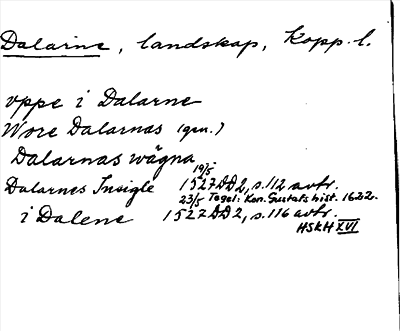 Dalarne, landskap, Kopp. l.
uppe i Dalarne
Wore Dalarnas (gen.)
Dalarnas wägna
19/5
Dalarnes Insigle 1527 DD2, s. 112 avtr.
23/5 Tegel: Kon. Gustafs hist. 1622.
i Dalene 1527 DD2, s. 116 avtr.
HSKH XVI